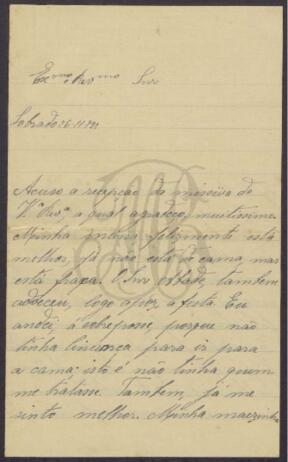 Exmo e Revmo Snr
Sobrado 6-11-
Acuso a recepção da missiva de
Va Reva a qual agradeço muitissimo.
Minha felizmente está
melhor, já não está de cama, mas
está fraca. O Snr Abbade, tambem
adoeceu, logo apoz a festa. Eu
andei, á sobreposse, porque não
tinha licença para ir para
a cama; isto é não tinha quem
me tratasse. Tambem já me
sinto melhor. Minha mãezinha